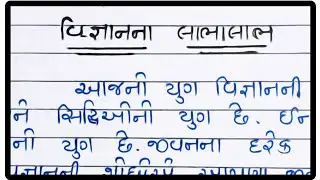 વિજ્ઞાનના લાભાલાભ
આજનો યુગ વિજ્ઞાનની
ને સિદ્ધિઓનો યુગ છે. ઈન
નો યુગ છે. જીવનના દરેક